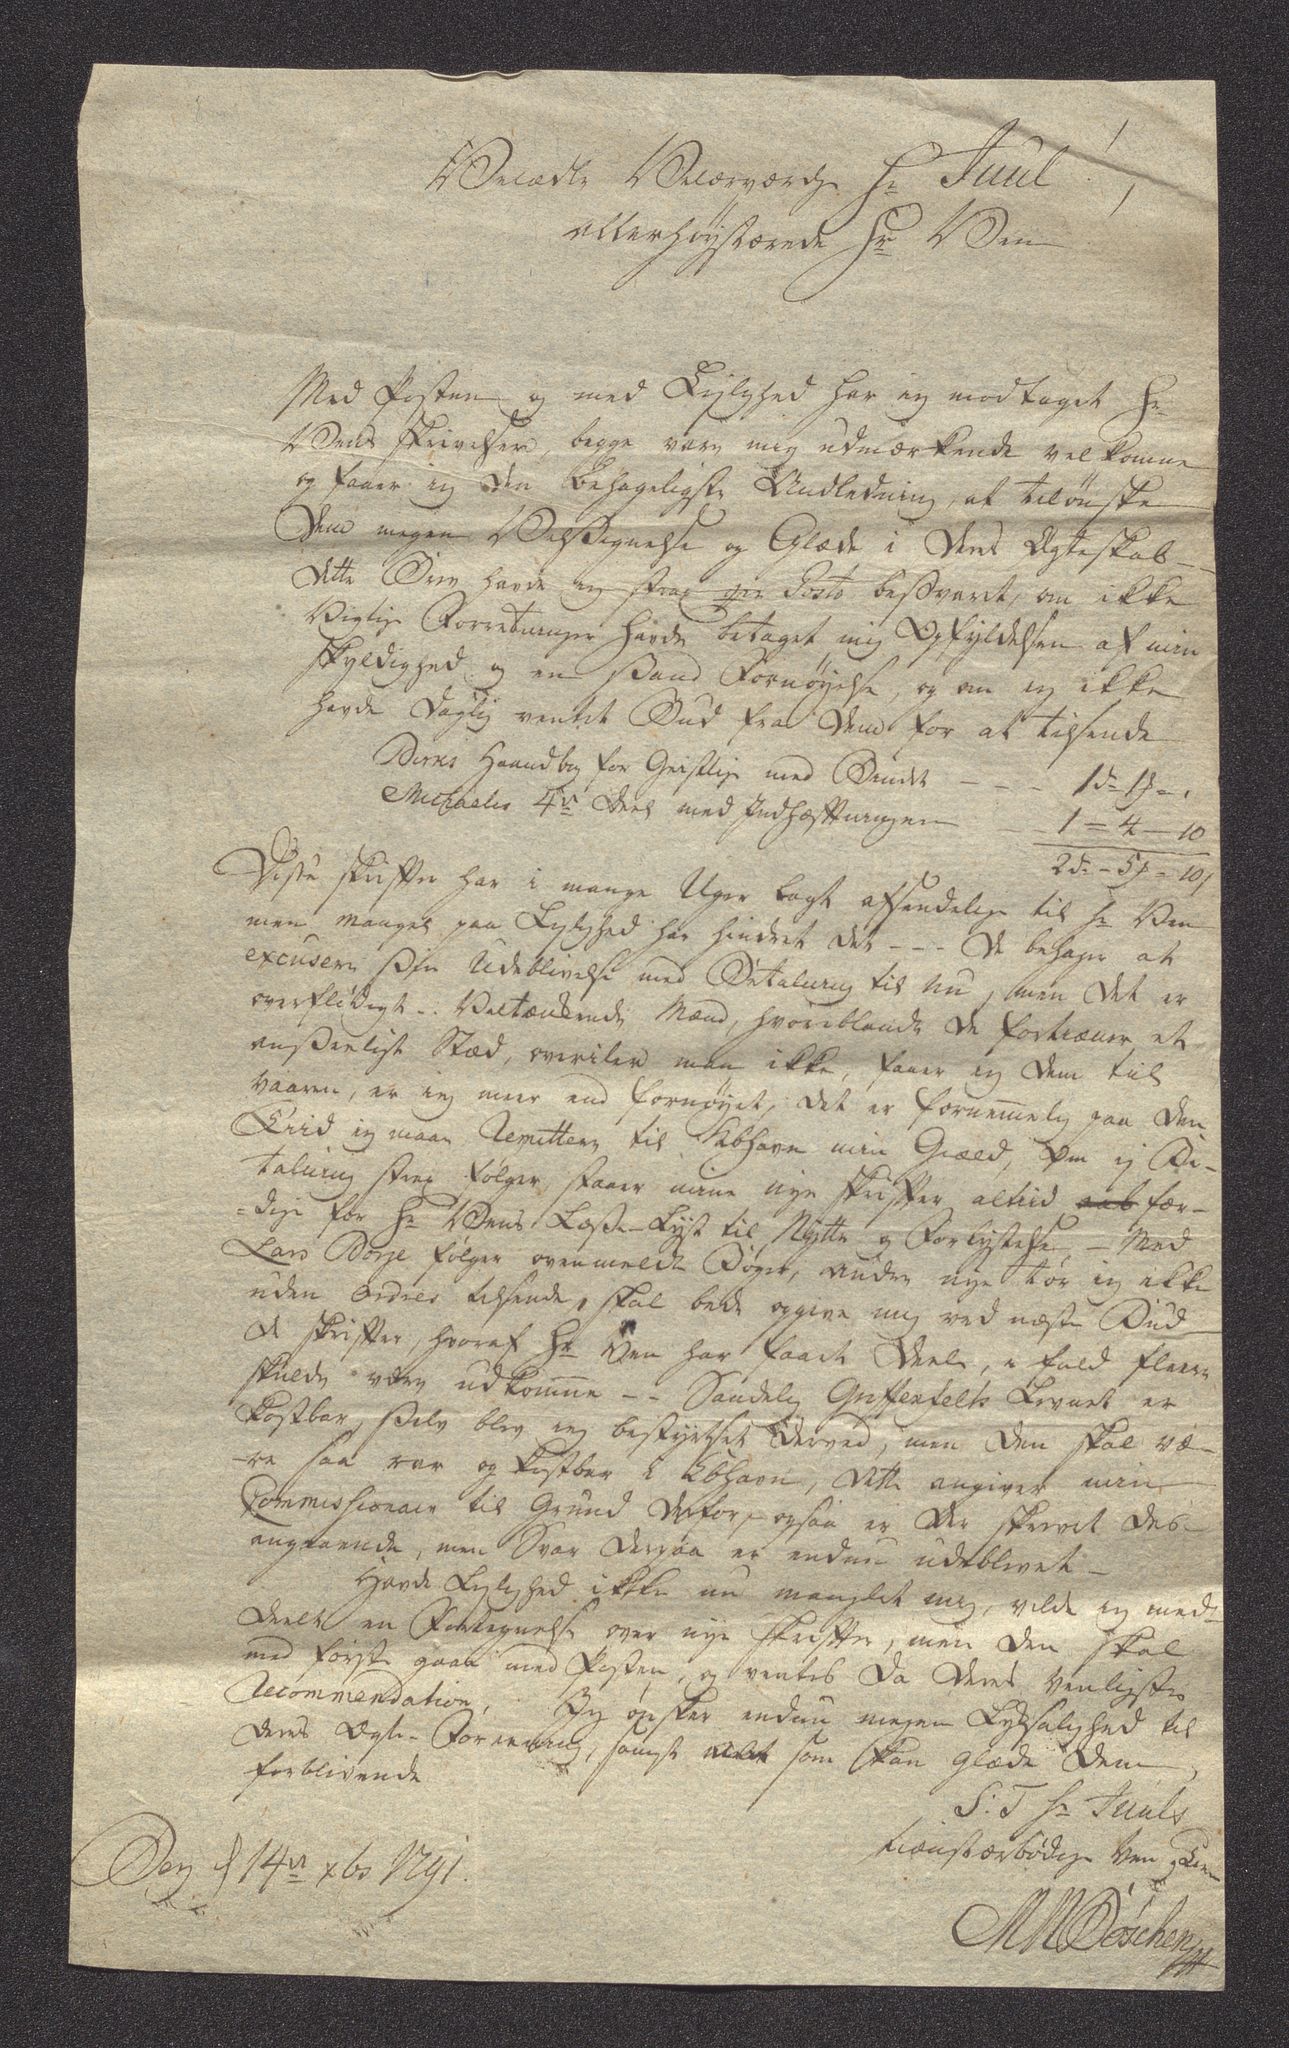 Velædle Velærværdige Hr Juul!
allerhøystærede Hr Ven
Med Posten og med Leylighed har ieg modtaget Hr
Vens skrivelser, begge vare mig udmærkende velkomne
og faaer ieg den behageligste Andledning, at tilønske
Dem megen Velsignelse og Glæde i Deres Ægteskab -
dette Brev havde ieg strax per Posto besvaret, om ikke
Vigtige Forretninger havde betaget mig Opfyldelsen af min
skyldighed og en sand Fornøyelse, og om ieg ikke
havde daglig ventet Bud fra Dem for at tilsende
Haandbog for Geistlige med Bindet - - - 1 d - 1 -
Michaelis 4de Deel med Indhæftningen - - 1 - 4 - 10
2 d - 5 - 10
Disse skrifter har i mange Uger lagt afsendelige til Hr Ven
men mangel paa Leylighed har hindret det - - - De behager at
excusere sin Udeblivelse med Betaling til nu, men det er
overflødigt -. Veltænkende Mænd, hvoriblandt De fortiener et
anseeligt Stæd, overiler man ikke, faaer ieg dem til
Vaaren, er ieg meer end fornøyet, det er fornemmelig paa den
Tiid ieg maae Remittere til Kbhavn min Giæld, Om ey Be-
taling strax følger, staaer mine nye skrifter altiid fær-
-dige for Hr Vens Læse-Lyst til Nytte og Forlystelse, - Med
Lars Borje følger ovenmeldte Bøger, andre nye tør ieg ikke
uden Ordres tilsende, skal bede opgive mig ved næste Bud
de skrifter, hvoraf Hr Ven har faaet Deele, i fald fleere
skulde være udkomne - - Sandelig Griffenfelds Levnet er
kostbar, selv blev ieg bestyrtset derved, men den skal væ-
-re saa rar og kostbar i Kbhavn, dette angiver min
Commissionair til Grund derfor, ogsaa er der skrevet des-
angaaende, men Svar derpaa er endnu udeblevet -
Havde Leylighed ikke nu manglet mig, vilde ieg med-
deelt en Fortegnelse over nye skrifter, men den skal
med første gaae med Posten, og ventes da Deres venligste
Recommendation, Jeg ønsker endnu megen Lyksalighed til
Deres Ægte-Forening, samt alt som kan glæde Dem,
forblivende
S. T. Hr Juuls
tienstærbødige Ven
d 14de xbr 1791.